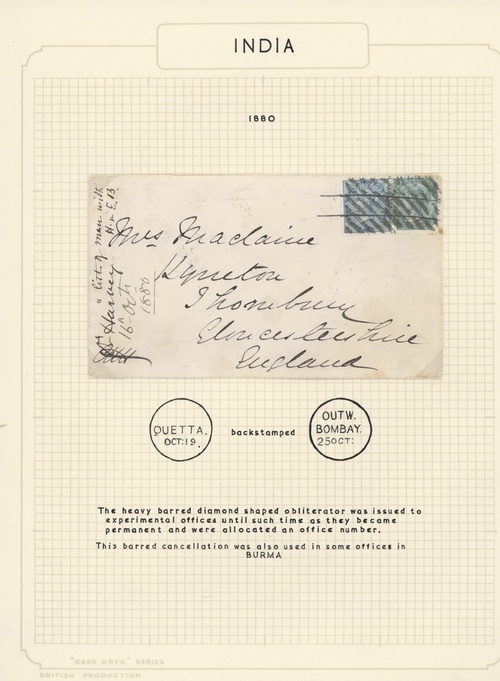 INDIA
1880
"List of man with
H. & E. B.
Harvey
16th Octr
1880
Mrs Maclaine
Kyneton
Thornbury
Gloucestershire
England
QUETTA.
OCT:19.
backstamped
OUTW.
BOMBAY.
25OCT:
The heavy barred diamond shaped obliterator was issued to
experimental offices until such time as they became
permanent and were allocated an office number.
This barred cancellation was also used in some offices in
BURMA
"CAEN URFA" SERIES
BRITISH PRODUCTION